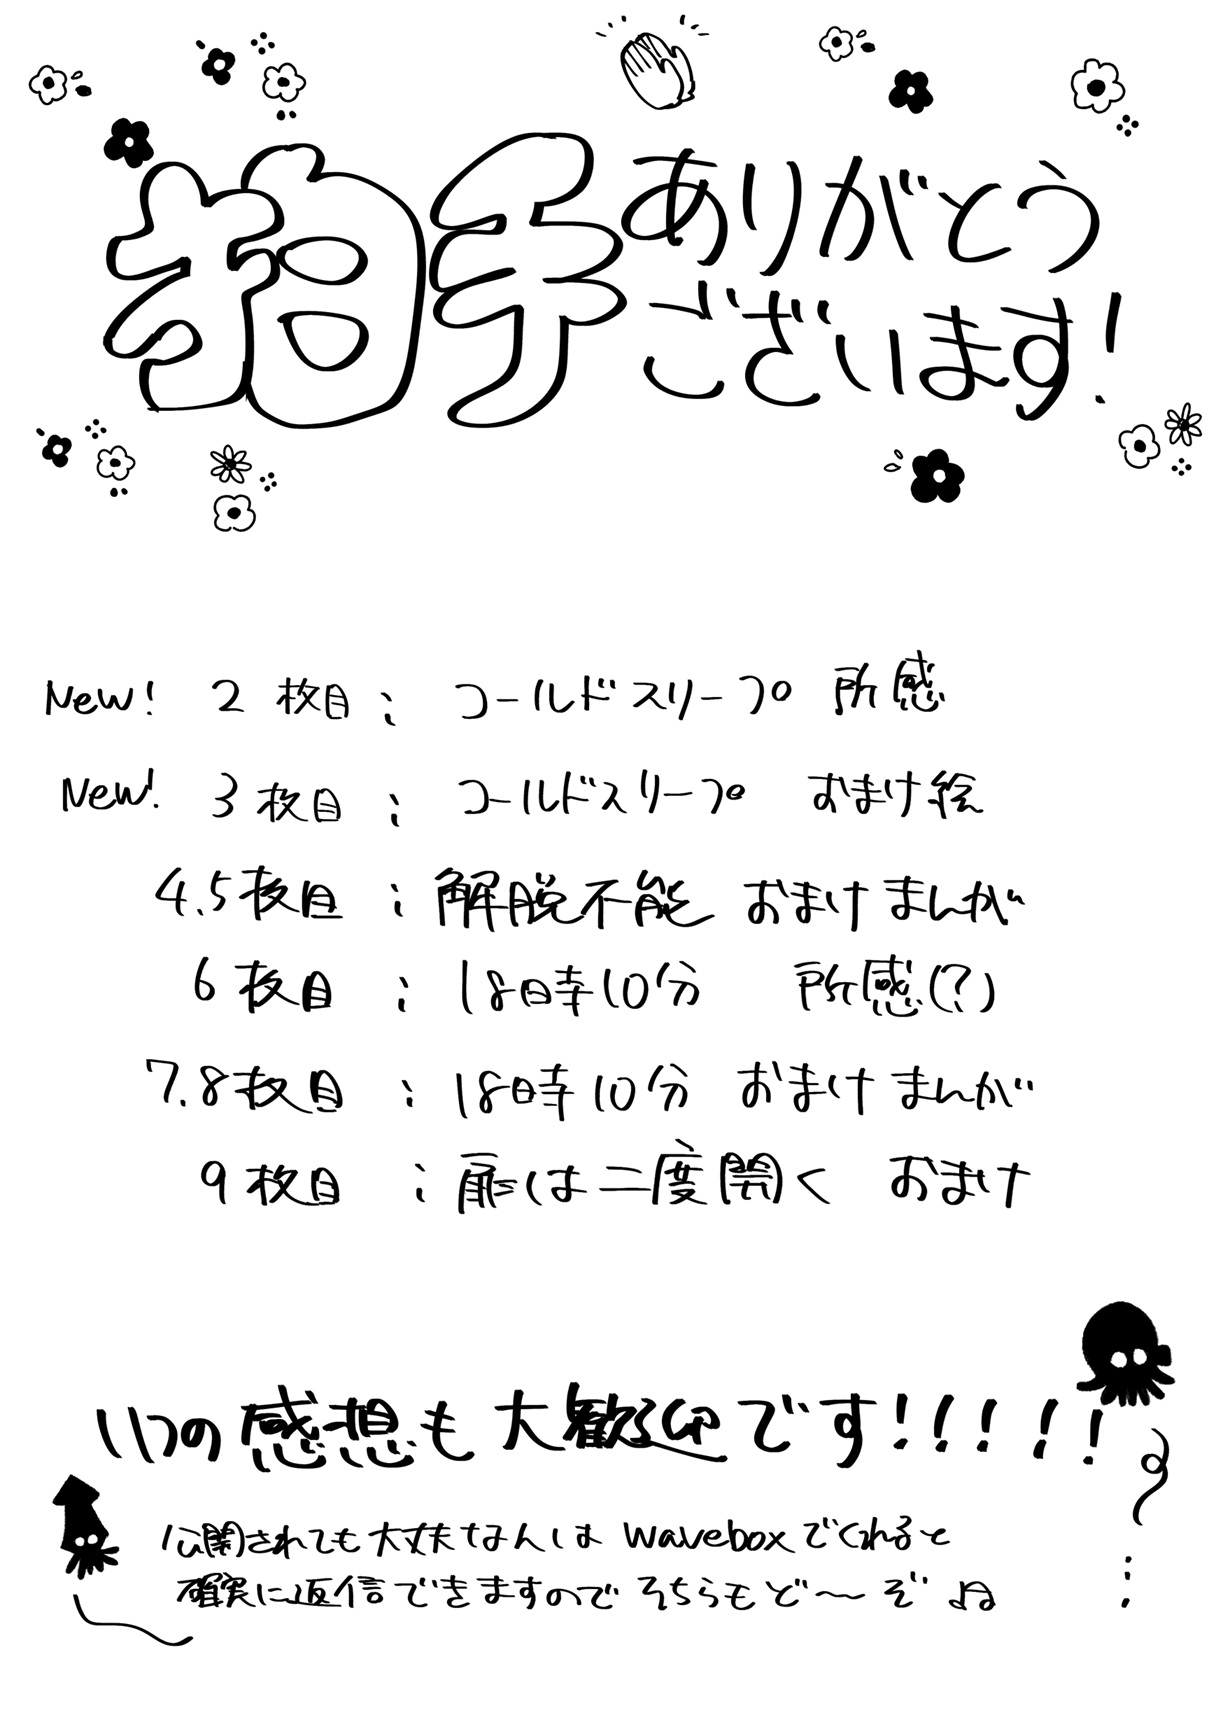 拍手ありがとう
ございます!
New! 2枚目: コールドスリープ 所感
New! 3枚目: コールドスリープ おまけ絵
4.5枚目: 解脱不能 おまけまんが
6枚目: 18時10分 所感(?)
7.8枚目: 18時10分 おまけまんが
9枚目: 扉は二度開く おまけ
いつの感想も大歓迎です!!!!!
公開されても大丈夫なんは waveboxでくれると
確実に返信できますので そちらもど〜ぞ よね